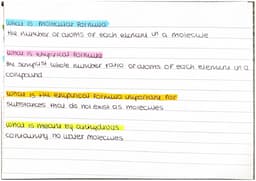 what is molecular formula
the number of atoms of each element in a molecule
what is empirical formula
the simplest whole number ratio of atoms of each element in a
compound
what is the empirical formula important for
substances that do not exist as molecules
what is meant by anhydrous
containing no water molecules